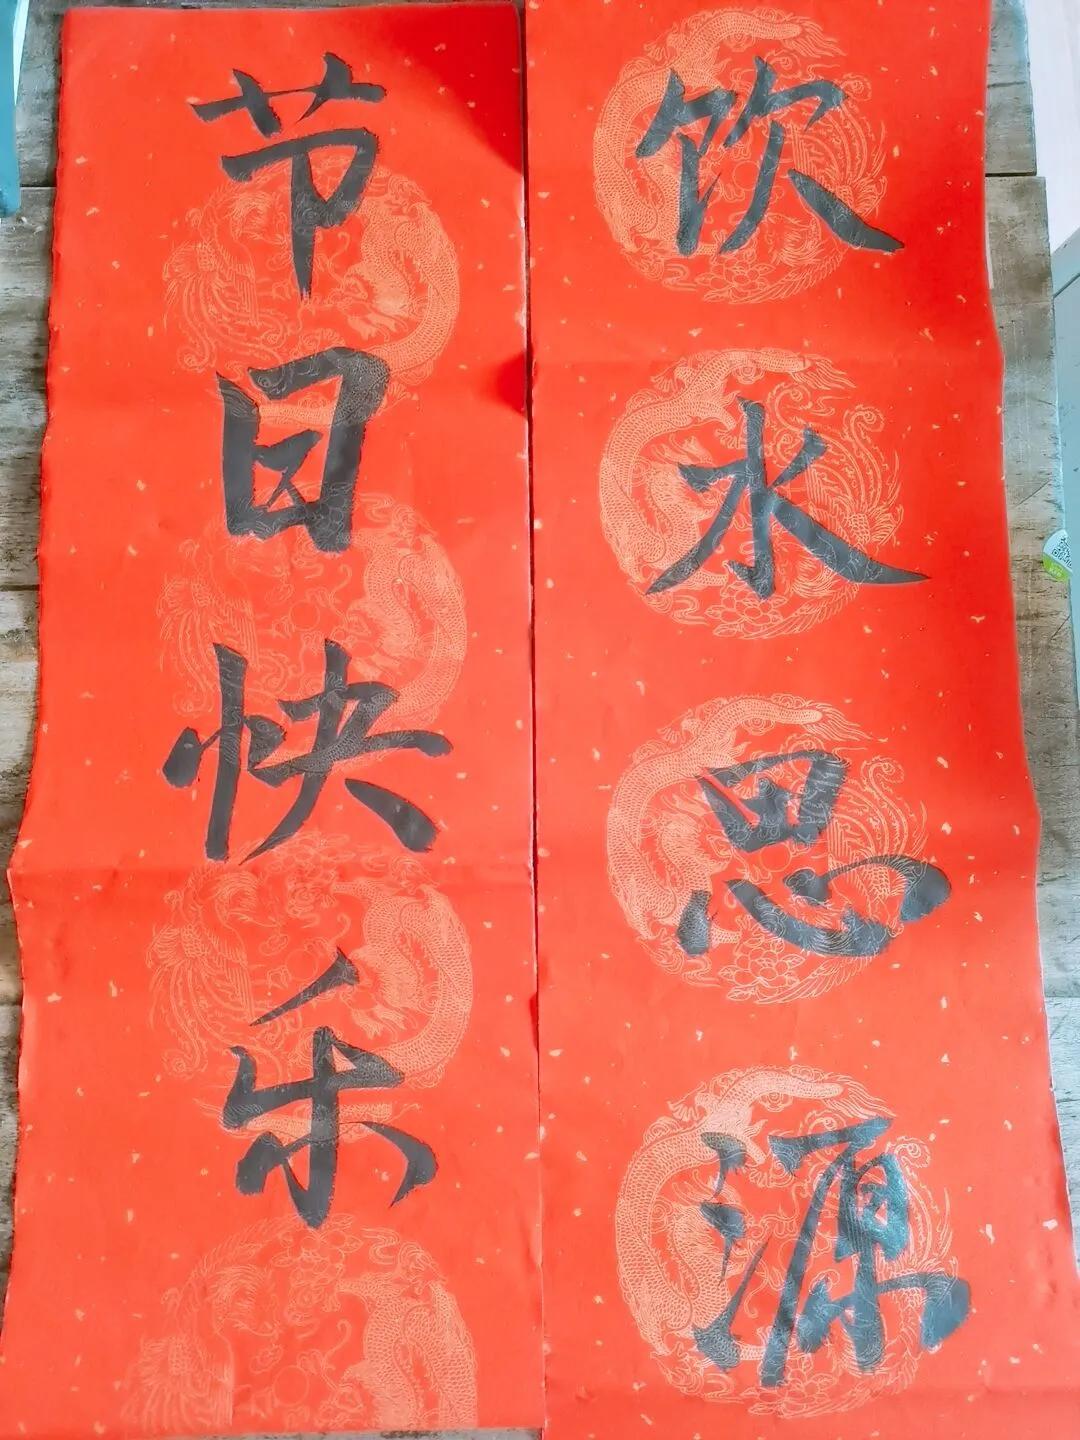 饮水思源
节日快乐